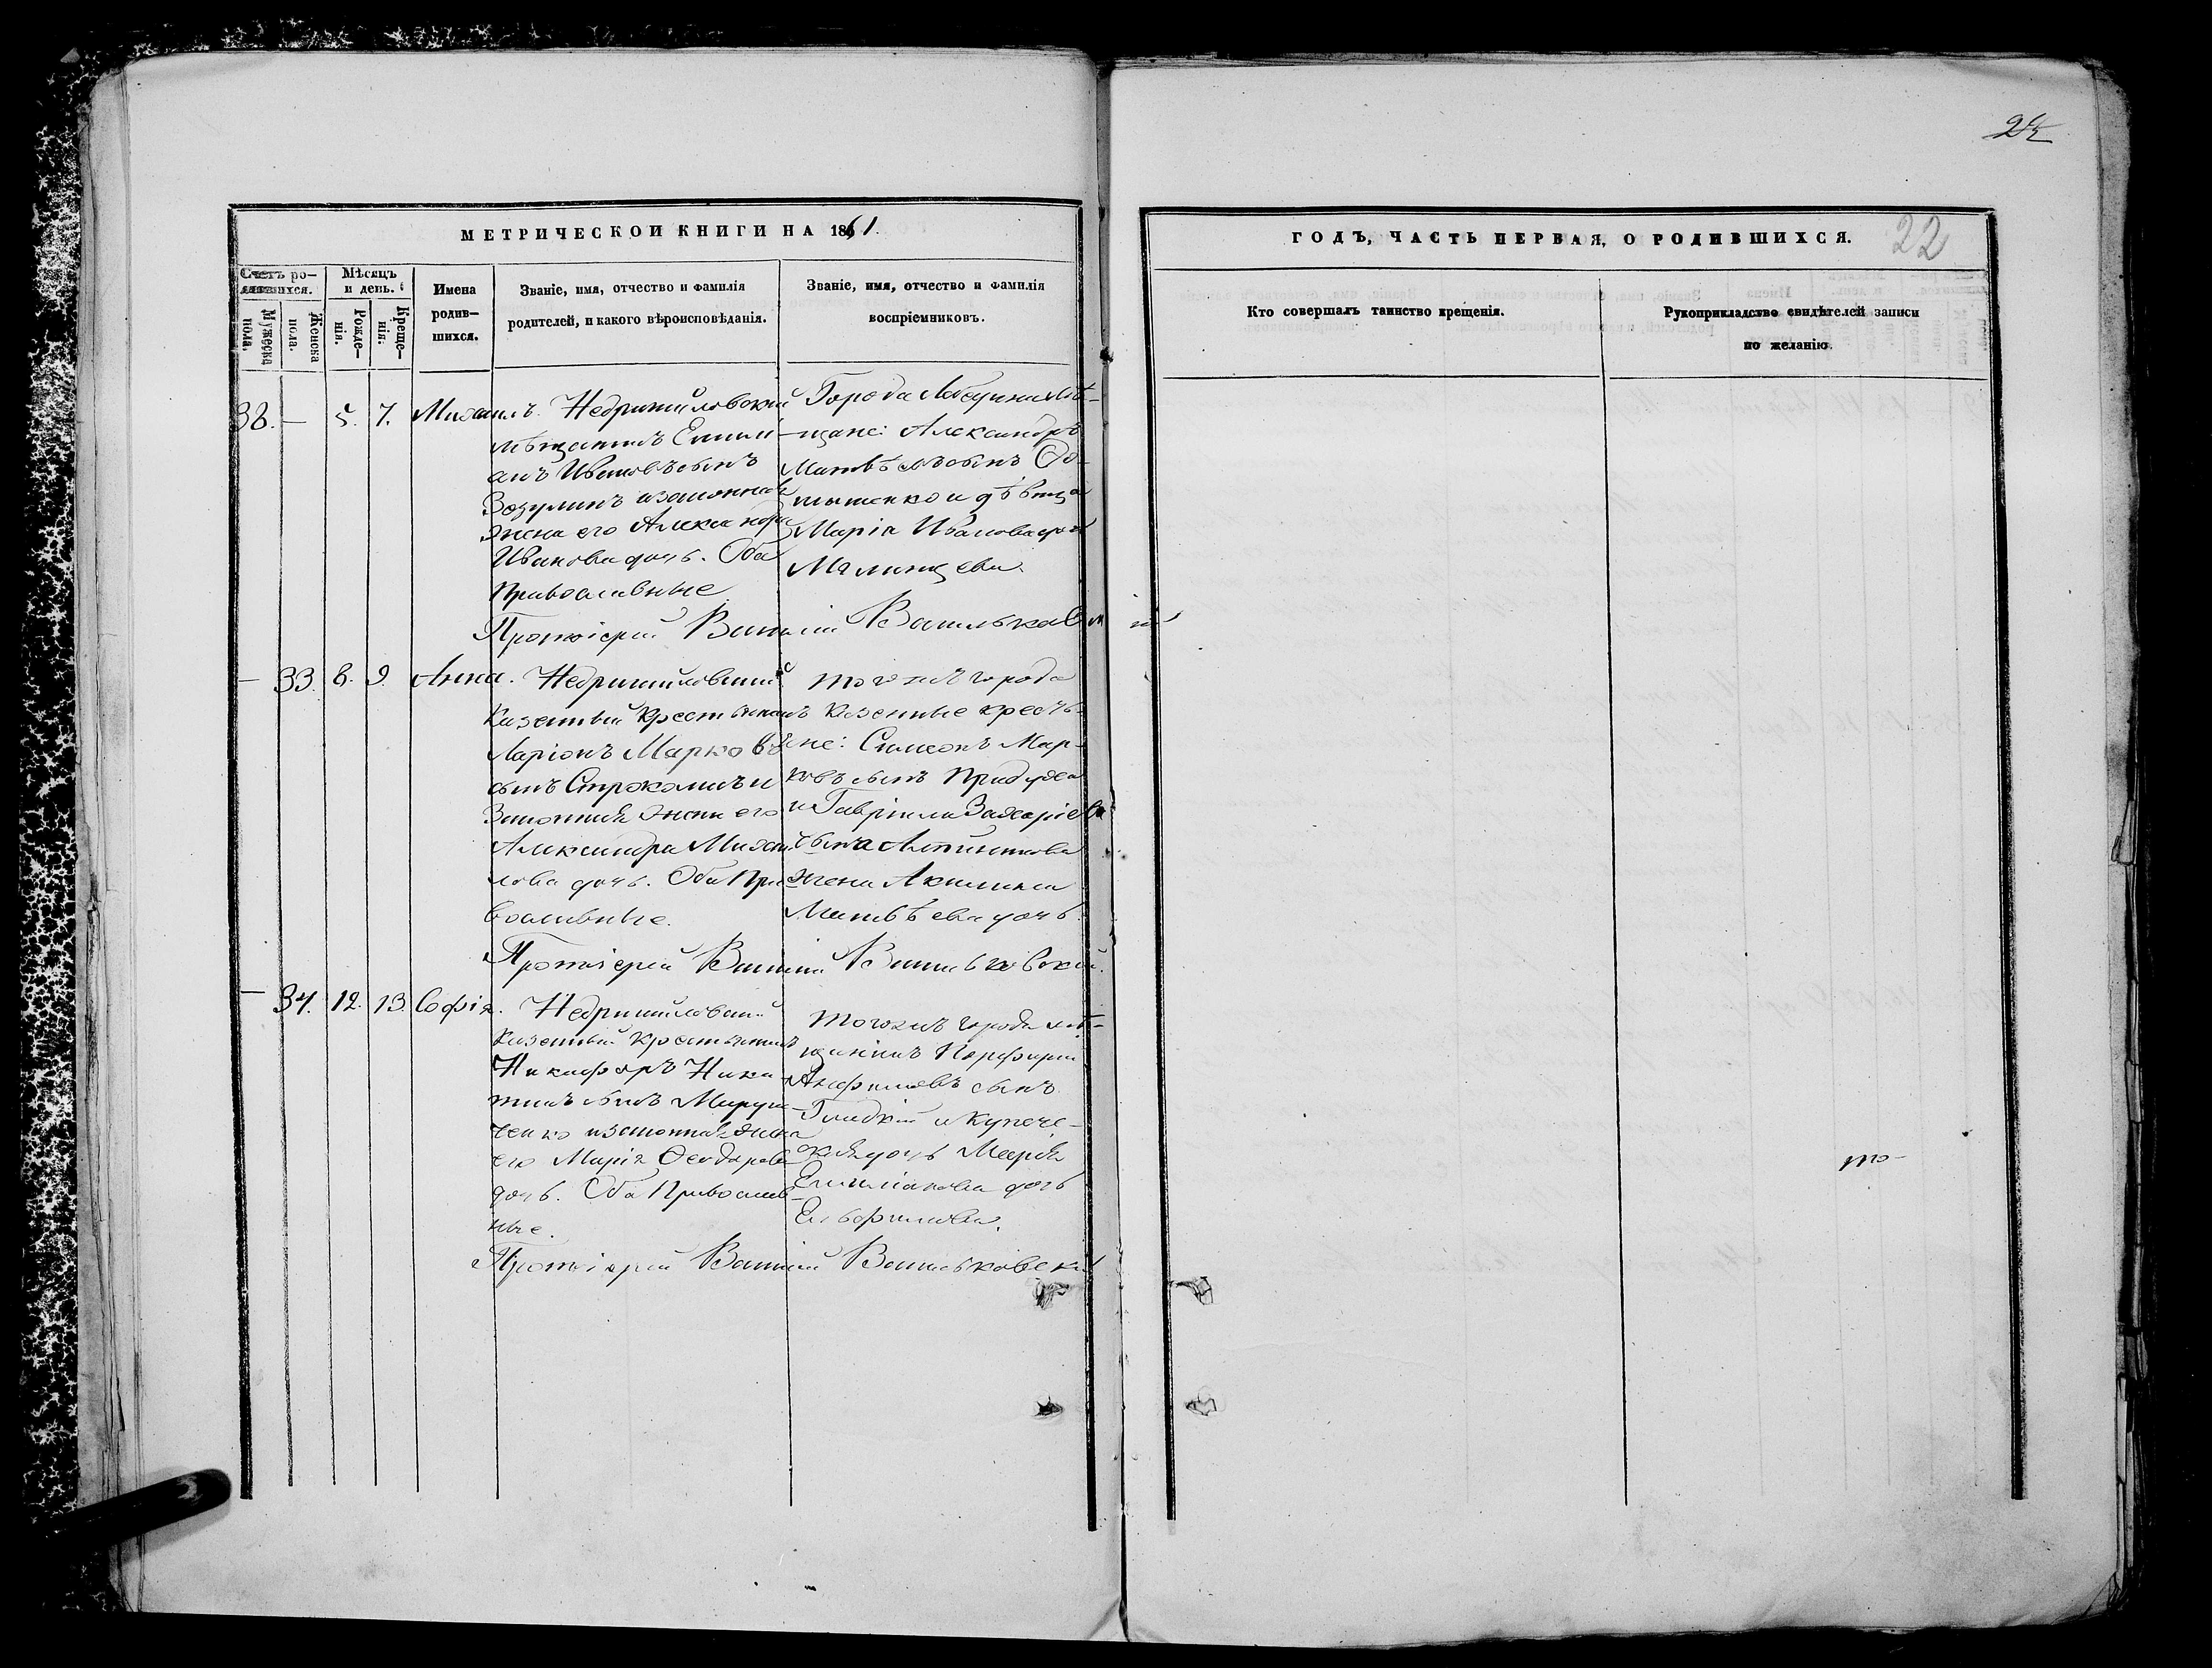 22
МЕТРИЧЕСКОЙ КНИГИ НА 1861.
ГОДЪ, ЧАСТЬ ПЕРВАЯ, О РОДИВШИХСЯ. 22
Счетъ ро-
дившихся.
Мужеска
пола.
Женска
пола.
Мѣсяцъ
и день.
Рожде-
нія.
Креще-
нія.
Имена
родив-
шихся.
Званіе, имя, отчество и фамилія
родителей, и какого вѣроисповѣданія.
Званіе, имя, отчество и фамилія
воспріемниковъ.
Кто совершалъ таинство крещенія.
Рукоприкладство свидѣтелей записи
по желанію.
38. — 5. 7. Михаилъ. Недригайловскій
мѣщанинъ Емили-
анъ Ивановъ сынъ
и законная
жена его Александра
Иванова дочь. Оба
Православные
Города
щане: Александръ
Матвѣевъ сынъ
и дѣвица
Марія Иванова дочь
Протоіерей Василій Васильковскій
— 33. 8. 9. Анна. Недригайловскій
Казенный крестьянинъ
Ларіонъ Марковъ
сынъ и
Законная жена его
Александра Михаи-
лова дочь. Оба Пра-
вославные.
тогожъ города
казенные кресть-
яне: Симеонъ Мар-
ковъ сынъ
и Гавріила Захаріева
сына
жена Акилина
Матвѣева дочь.
Протоіерей Василій Васильковскій.
— 34. 12. 13. Софія. Недригайловскій
Казенный крестьянинъ
Никифоръ Ники-
тинъ сынъ
и законная жена
его Марія Ѳеодорова
дочь. Оба Православ-
ные.
тогожъ города мѣ-
щанинъ Порфирій
сынъ
Гладкій и купече-
ская дочь Марія
Емиліанова дочь
Протоіерей Василій Васильковскій
то-